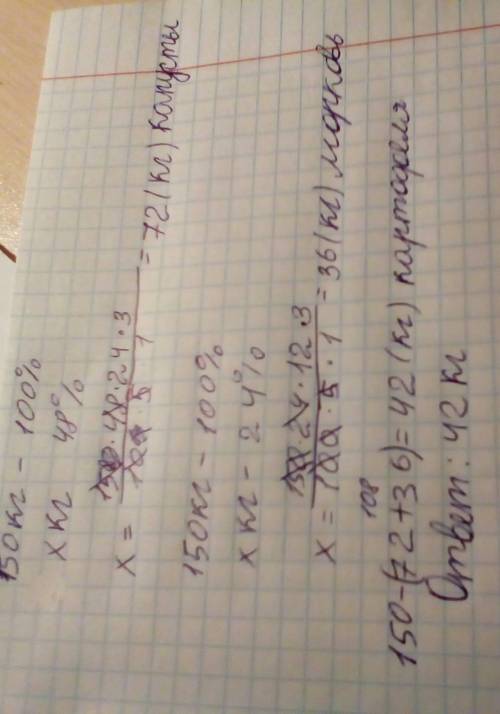 150кг - 100%
х кг 48%
х = 150 · 48 · 24 · 3 / 100 · 5 · 1 = 72 (кг) капусты
150кг - 100%
х кг - 24%
х = 150 · 24 · 12 · 3 / 100 · 5 · 1 = 36 (кг) морковь
108
150-(72+36)=42 (кг) картофеля
Ответ: 42 кг